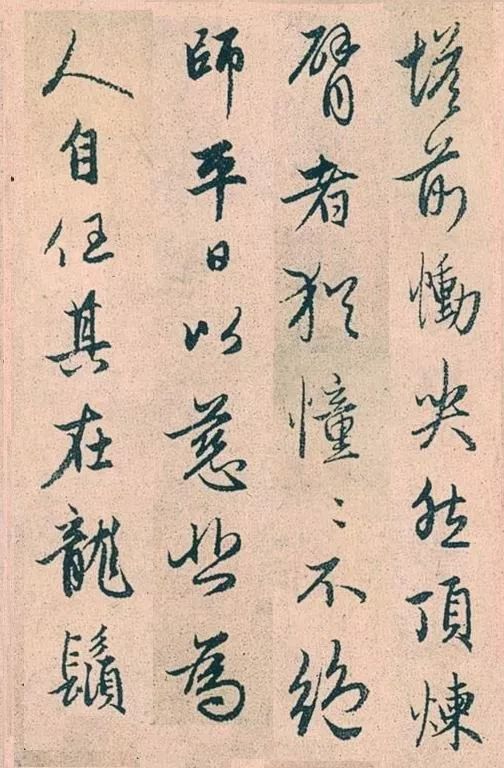 塔前慟哭然頂煉
臂者猶憧〻不絕
師平日以慈悲為
人自任其在龍鬚